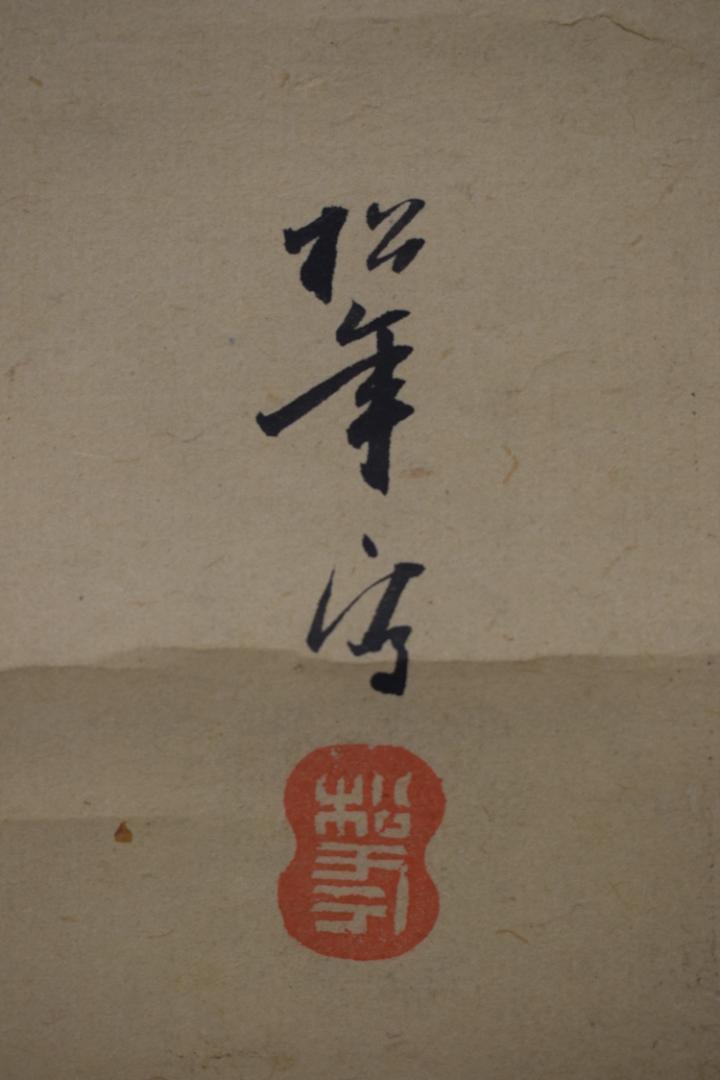 松年
写
松年